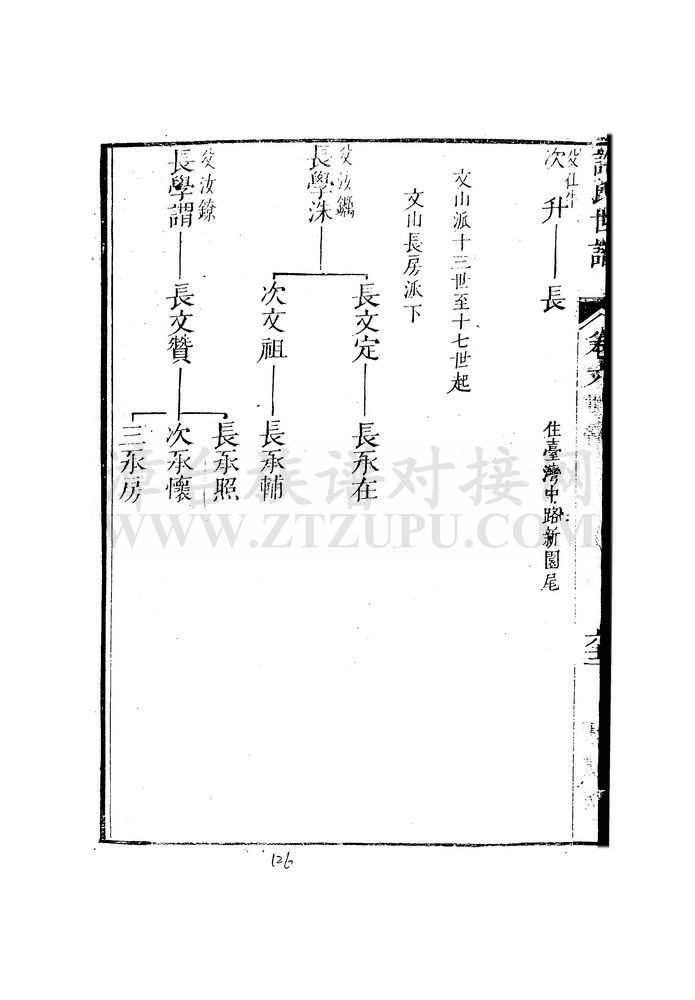 氏世譜
次升
長
住臺灣中路新園尾
文山派十三世至十七世起
文山長房派下
父汝鑴
長學洙
長文定
長承在
次文祖
長承輔
父汝鐐
長學謂
長文贊
長承照
次承懷
三承房
漳台族谱对接网
WWW.ZTZUPU.COM
126